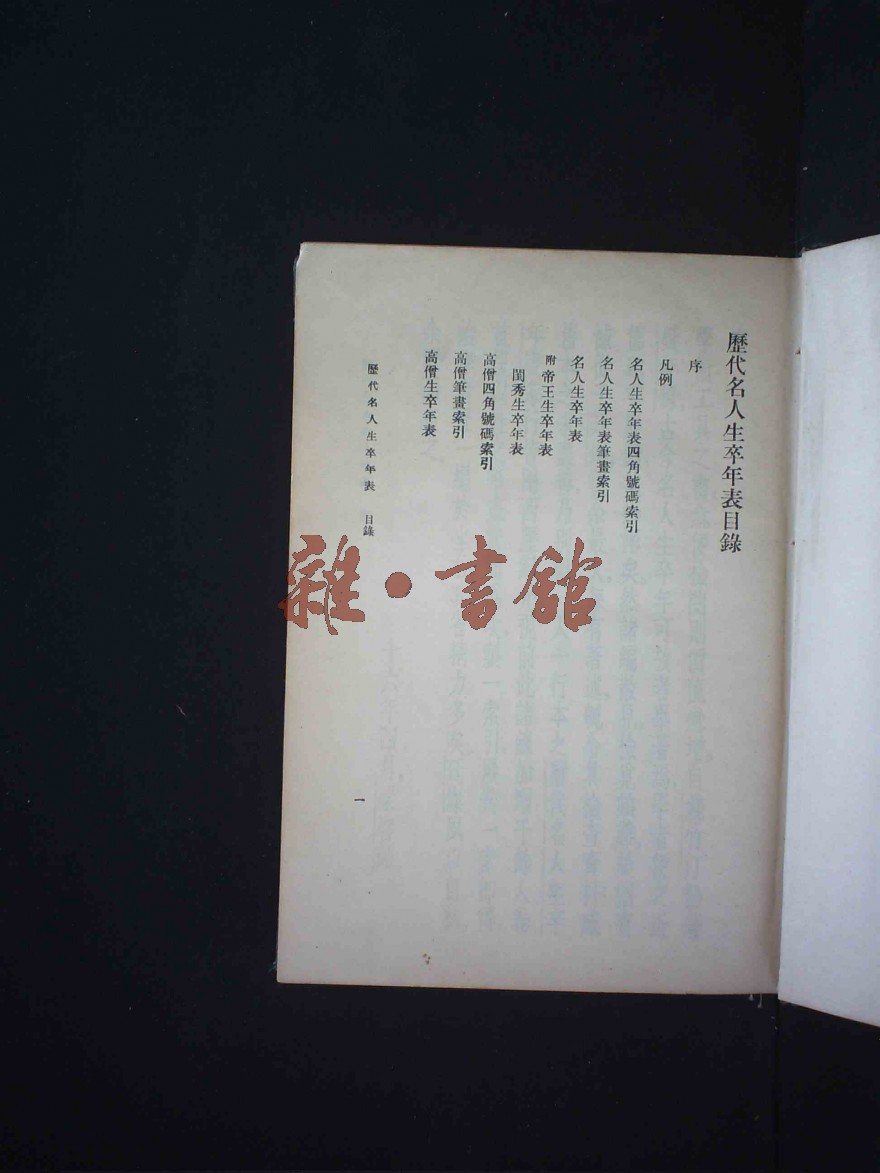 歷代名人生卒年表目錄
序
凡例
名人生卒年表四角號碼索引
名人生卒年表筆畫索引
名人生卒年表
附 帝王生卒年表
閨秀生卒年表
高僧四角號碼索引
高僧筆畫索引
高僧生卒年表
歷代名人生卒年表 目錄
一
雜·書館